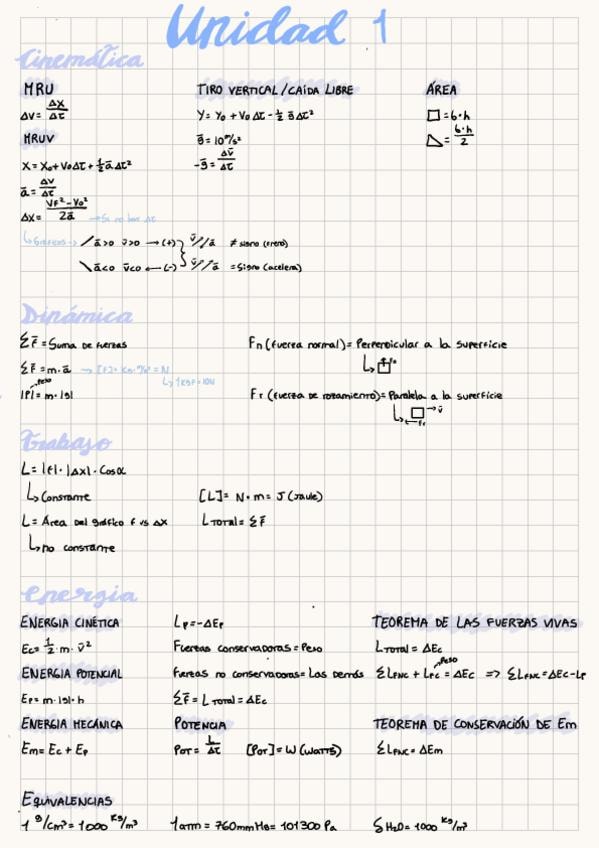 Unidad 1
Cinemática
MRU
ΔV = Δx/Δt
MRUV
X = X₀ + V₀ Δt + 1/2 a̅ Δt²
a̅ = Δv/Δt
Δx = (Vf² - V₀²)/2a̅ → Si no hay Δt
↳ Gráficos → / a̅>0 v̅>0 → (+) } v̅//a̅ ≠ signo (freno)
\ a̅<0 v̅<0 ← (-) } v̅//a̅ = signo (acelera)
TIRO VERTICAL/CAÍDA LIBRE
Y = Y₀ + V₀ Δt - 1/2 g̅ Δt²
g̅ = 10 m/s²
-g̅ = Δv̅/Δt
ÁREA
□ = b·h
◺ = b·h/2
Dinámica
ΣF̅ = Suma de fuerzas
ΣF̅ = m·a̅ → [F] = kg·m/s² = N
↳ 1kgF = 10N
peso
|P| = m·|g|
Fn (fuerza normal) = Perpendicular a la superficie
↳ □ Fn
Fr (fuerza de rozamiento) = Paralela a la superficie
↳ □ → v̅
← fr
Trabajo
L = |F|·|Δx|·Cosα
↳ Constante
[L] = N·m = J (Jaule)
L = Área del gráfico F vs Δx
L TOTAL = ΣF̅
↳ no constante
Energia
ENERGIA CINÉTICA
Ec = 1/2·m·v̅²
ENERGIA POTENCIAL
Ep = m·|g|·h
ENERGIA MECÁNICA
Em = Ec + Ep
Lp = -ΔEp
Fuerzas conservadoras = Peso
Fuerzas no conservadoras = Las demás
ΣF̅ = L TOTAL = ΔEc
POTENCIA
POT = L/Δt [POT] = W (WATTS)
TEOREMA DE LAS FUERZAS VIVAS
L TOTAL = ΔEc
peso
ΣLFNC + LFC = ΔEc => ΣLFNC = ΔEc - LP
TEOREMA DE CONSERVACIÓN DE Em
ΣLFNC = ΔEm
EQUIVALENCIAS
1 g/cm³ = 1000 kg/m³ 1 atm = 760 mmHg = 101300 Pa δH₂O = 1000 kg/m³